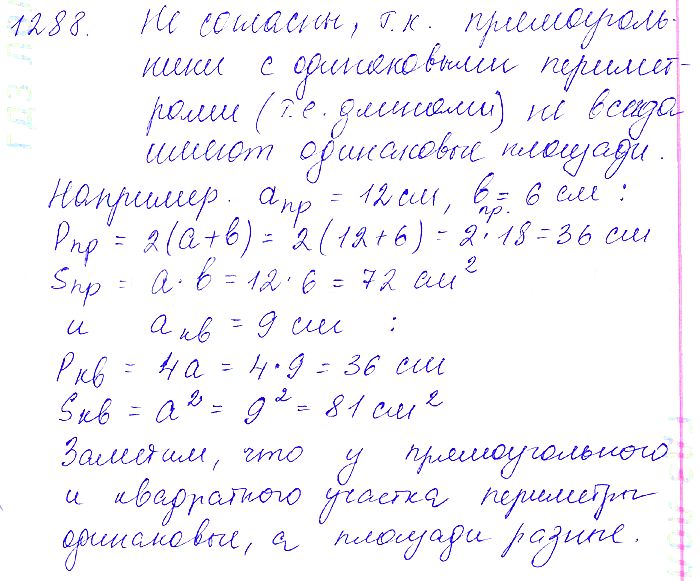 1288. Не согласны, т.к. прямоуголь-
ники с одинаковыми перимет-
рами (т.е. длинами) не всегда
имеют одинаковые площади.
Например. aпр = 12 см, bпр. = 6 см :
Pпр = 2(a+b) = 2(12+6) = 2·18 = 36 см
Sпр = a·b = 12·6 = 72 см²
и aкв = 9 см :
Pкв = 4a = 4·9 = 36 см
Sкв = a² = 9² = 81 см²
Заметим, что у прямоугольного
и квадратного участка периметры
одинаковые, а площади разные.